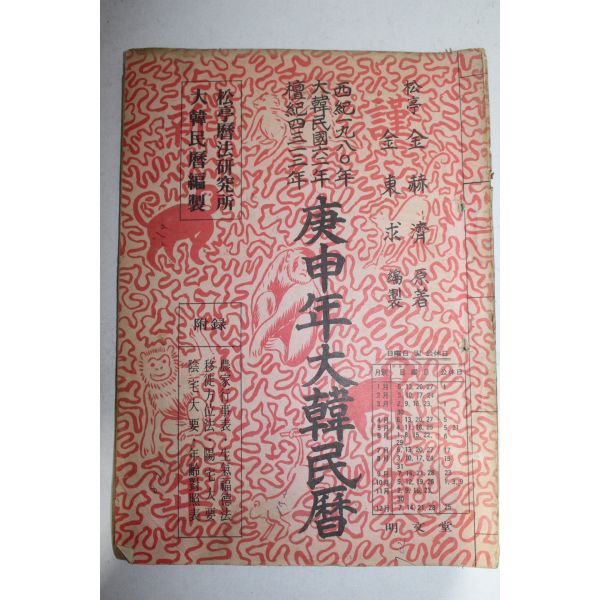 松亭 金赫濟 原著
謹
金東求 編製
西紀一九八〇年
大韓民國六二年
檀紀四三一三年
庚申年大韓民曆
松亭曆法研究所
大韓民曆編製
附録
農家行事表・生氣福德法
移徙方位法・陽宅大要
陰宅大要・年齡對照表
日曜日 및 公休日
月別 日曜日 公休日
1月 6, 13, 20, 27 1
2月 3, 10, 17, 24
3月 2, 9, 16, 23, 30
4月 6, 13, 20, 27 5
5月 4, 11, 18, 25 5, 21
6月 1, 8, 15, 22, 29 6
7月 6, 13, 20, 27 17
8月 3, 10, 17, 24, 31 15
9月 7, 14, 21, 28 23
10月 5, 12, 19, 26 1, 3, 9
11月 2, 9, 16, 23,
12月 7, 14, 21, 28 25
明文堂